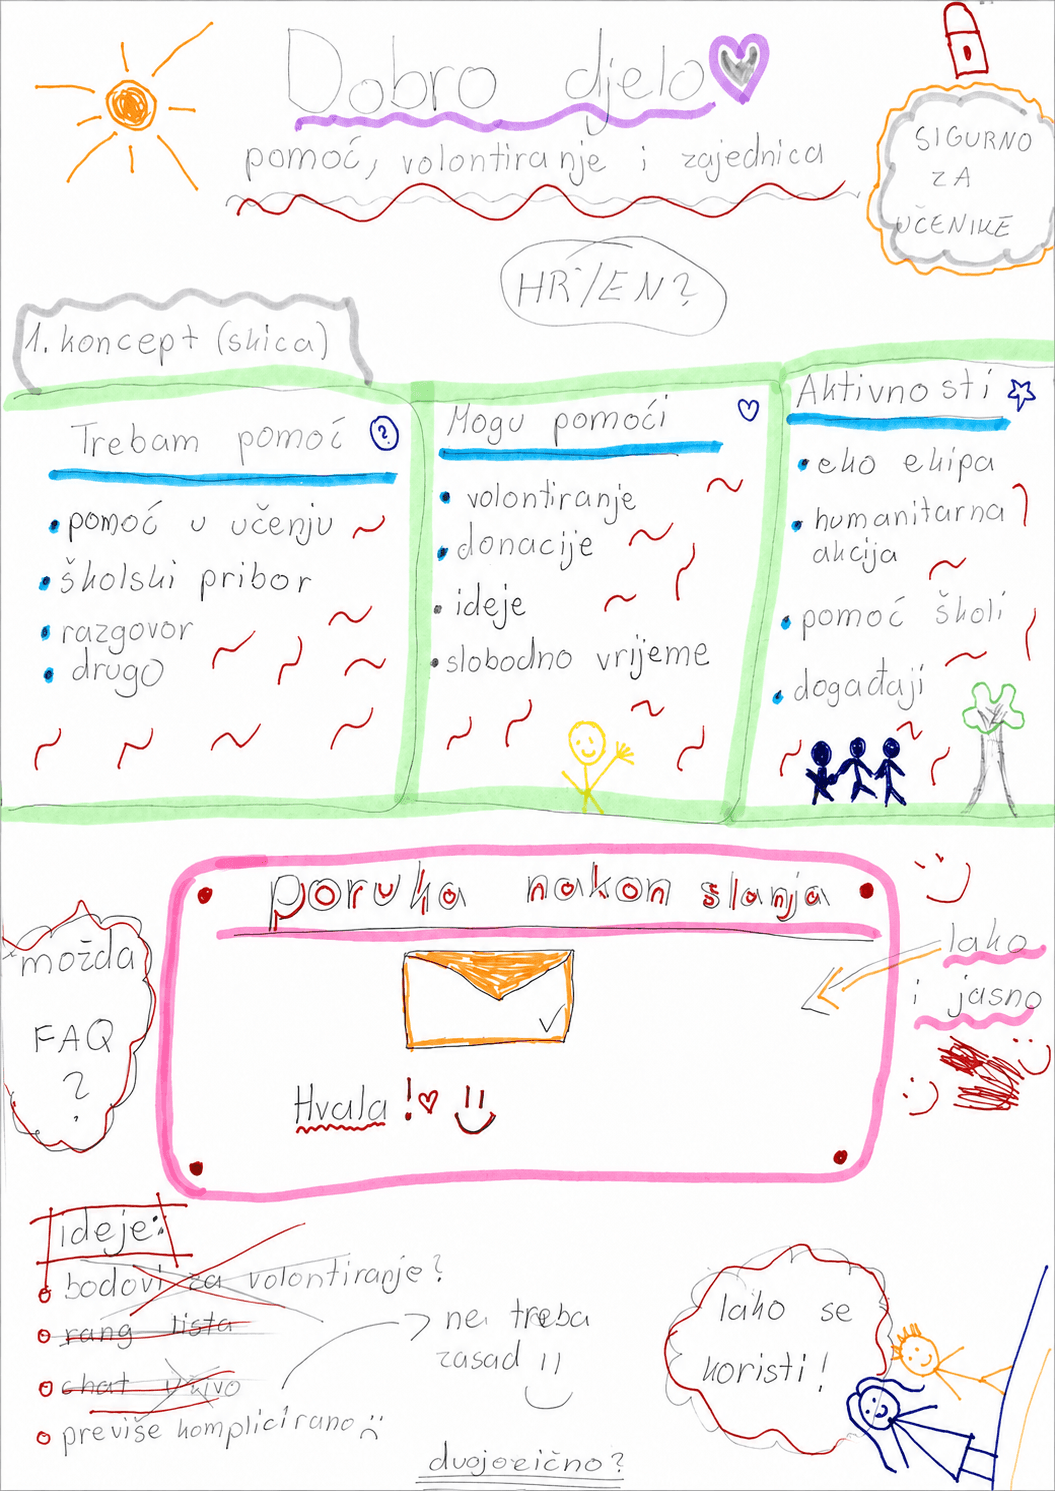 Dobro djelo
pomoć, volontiranje i zajednica
SIGURNO
ZA
UČENIKE
HR/EN?
1. koncept (skica)
Trebam pomoć ?
• pomoć u učenju
• školski pribor
• razgovor
• drugo
Mogu pomoći
• volontiranje
• donacije
• ideje
• slobodno vrijeme
Aktivnosti
• eko ekipa
• humanitarna
akcija
• pomoć školi
• događaji
poruka nakon slanja
Hvala!
možda
FAQ
?
lako
i jasno
ideje:
bodovi za volontiranje?
rang lista
chat uživo
previše komplicirano
ne treba
zasad !!
lako se
koristi!
dvojezično?